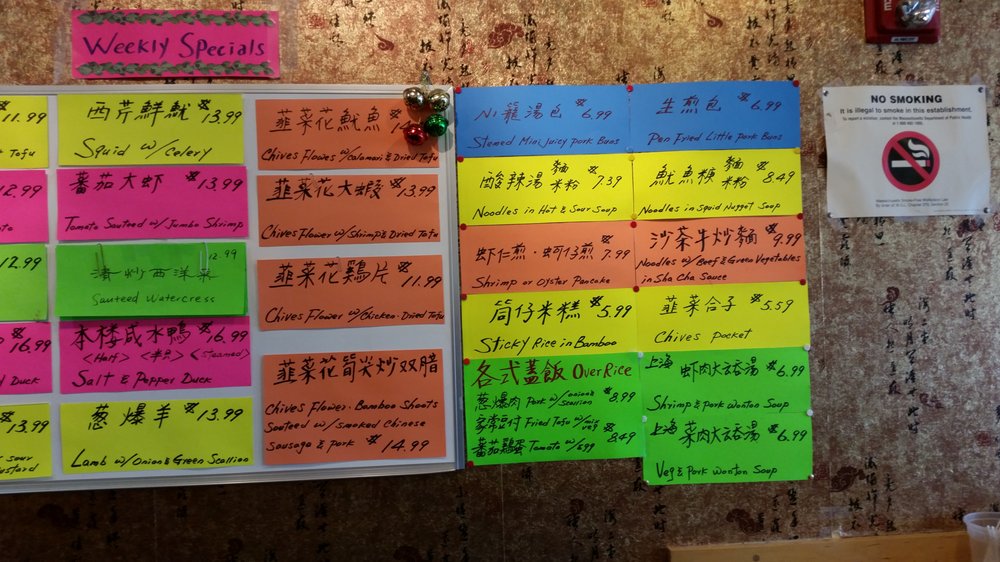 Weekly Specials
11.99
Tofu
12.99
12.99
16.99
Duck
13.99
西芹鮮魷 13.99
Squid w/Celery
番茄大虾 13.99
Tomato Sauteed w/ Jumbo Shrimp
清炒西洋菜 12.99
Sauteed Watercress
本楼咸水鴨 16.99
<Half> <半隻> <Steamed>
Salt & Pepper Duck
葱爆羊 13.99
Lamb w/Onion & Green Scallion
韮菜花魷魚
Chives Flower w/Calamari & Dried Tofu
韮菜花大蝦 13.99
Chives Flower w/Shrimp & Dried Tofu
韮菜花鶏片 11.99
Chives Flower w/Chicken. Dried Tofu
韮菜花筍尖炒双腊
Chives Flower. Bamboo Shoots
Sauteed w/ Smoked Chinese
Sausage & Pork 14.99
小籠湯包 6.99
Stemed Mini Juicy Pork Buns
生煎包 6.99
Pan Fried Little Pork Buns
酸辣湯 麵 米粉 7.39
Noodles in Hot & Sour Soup
魷魚羹 麵 米粉 8.49
Noodles in Squid Nugget Soup
虾仁煎·蚵仔煎 7.99
Shrimp or Oyster Pancake
沙茶牛炒麵 9.99
Noodles w/Beef & Green Vegetables
in Sha Cha Sauce
筒仔米糕 $5.99
Sticky Rice in Bamboo
韮菜合子 5.59
Chives Pocket
各式蓋飯 Over Rice
葱爆肉 Pork w/onion & Scallion 8.99
家常豆付 Fried Tofu w/mix veg
番茄雞蛋 Tomato w/egg 8.49
上海 虾肉大云吞湯 6.99
Shrimp & Pork Wonton Soup
上海 菜肉大云吞湯 6.99
Veg & Pork Wonton Soup
NO SMOKING
It is illegal to smoke in this establishment.